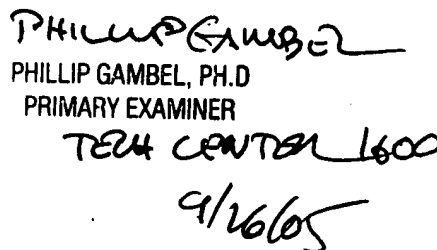 PHILLIP GAMBEL
PHILLIP GAMBEL, PH.D
PRIMARY EXAMINER
TECH CENTER 1600
9/26/05